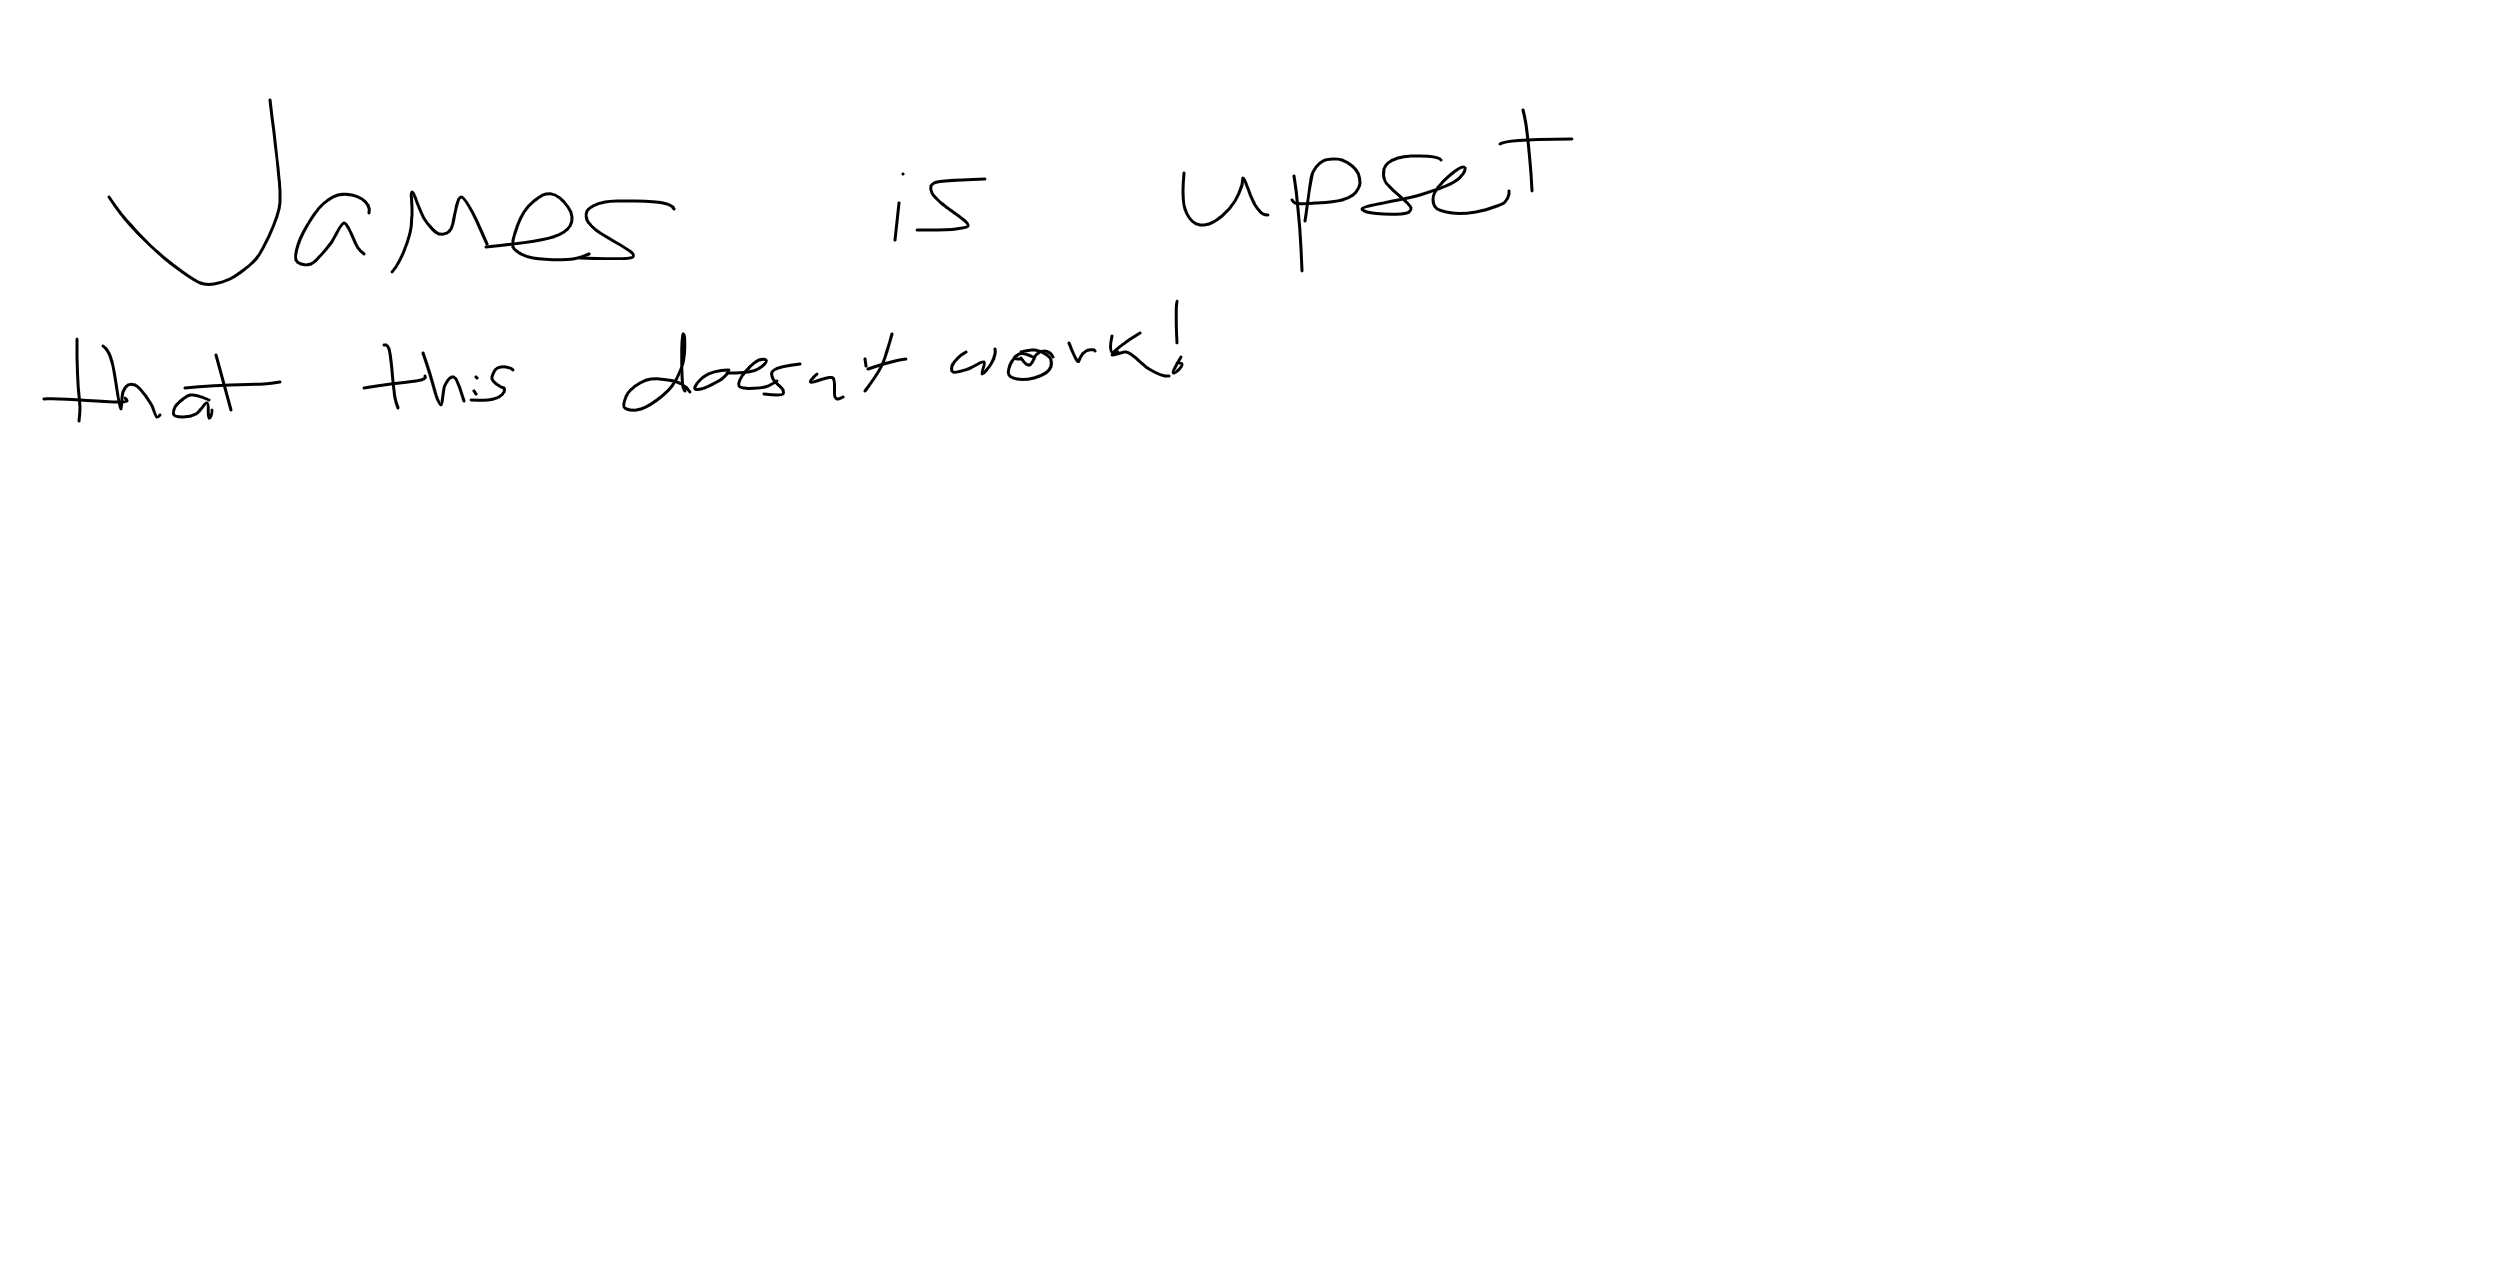 James is upset
that this doesnt work!